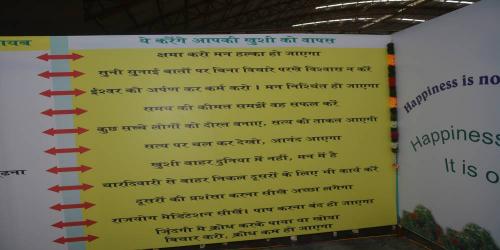 ये करेंगे आपकी खुशी को वापस
क्षमा करो मन हल्का हो जाएगा
सुनी सुनाई बातों पर बिना विचारे परखे विश्वास न करें
ईश्वर को अर्पण कर कर्म करो । मन निश्चिंत हो जाएगा
समय की कीमत समझें वह सफल करें
कुछ सच्चे लोगों को दोस्त बनाए, सत्य की ताकत आएगी
सत्य पर चल कर देखो, आनंद आएगा
खुशी बाहर दुनिया में नहीं, मन में है
चारदिवारी से बाहर निकल दूसरों के लिए भी कार्य करें
दूसरों की प्रशंसा करना सीखे अच्छा लगेगा
राजयोग मेडिटेशन सीखें। पाप करना बंद हो जाएगा
जिंदगी में क्रोध करके पाया या खोया
विचार करो, क्रोध कम हो जाएगा
Happiness is no
Happiness
It is o